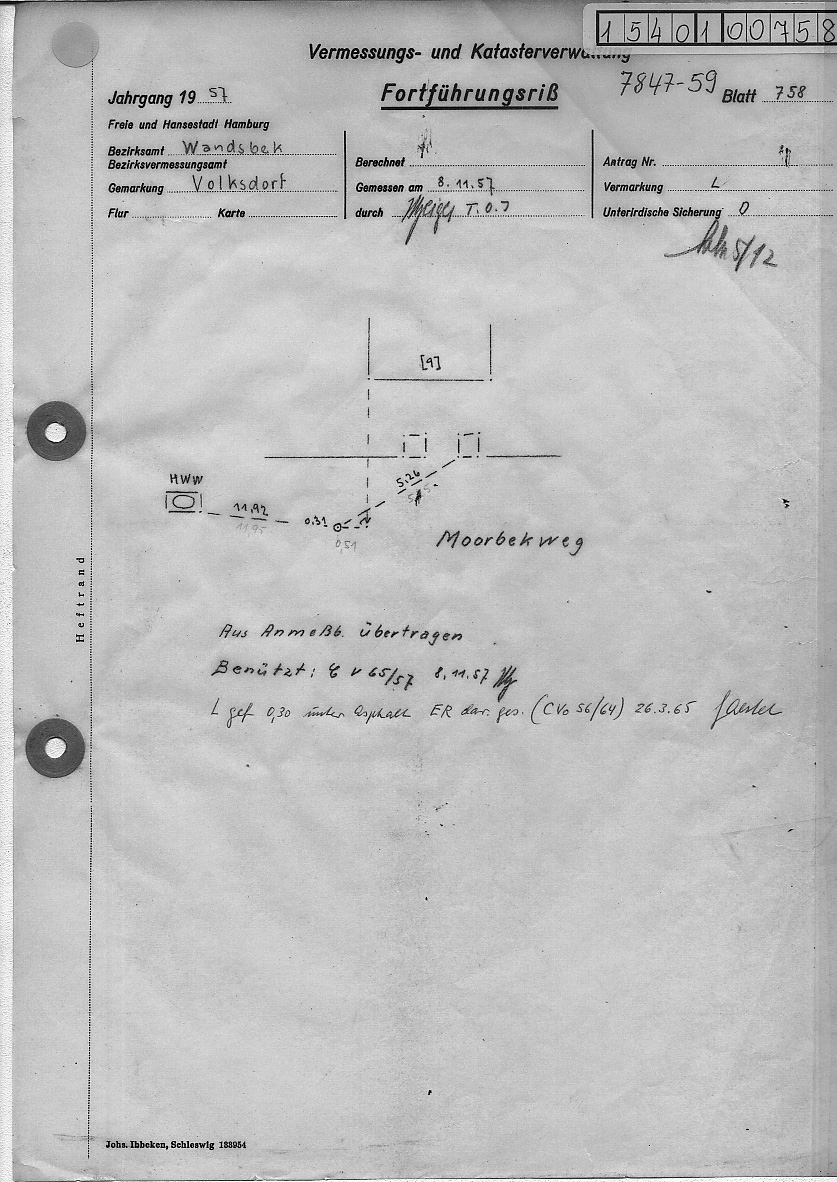 15401 00758
Vermessungs- und Katasterverwaltung
7847-59
Jahrgang 1957 Fortführungsriß Blatt 758
Freie und Hansestadt Hamburg
Bezirksamt Wandsbek
Bezirksvermessungsamt
Gemarkung Volksdorf
Flur Karte
Berechnet
Gemessen am 8.11.57
durch T.O.J
Antrag Nr.
Vermarkung L
Unterirdische Sicherung 0
5/12
[9]
HWW
11,92
11,95
0.31
0,51
5.26
Moorbekweg
Heftrand
Aus Anmeßb. übertragen
Benützt: C V 65/57 8.11.57
L gef 0,30 unter Asphalt ER dar. ges. (CVo 56/64) 26.3.65
Johs. Ibbeken, Schleswig 133954